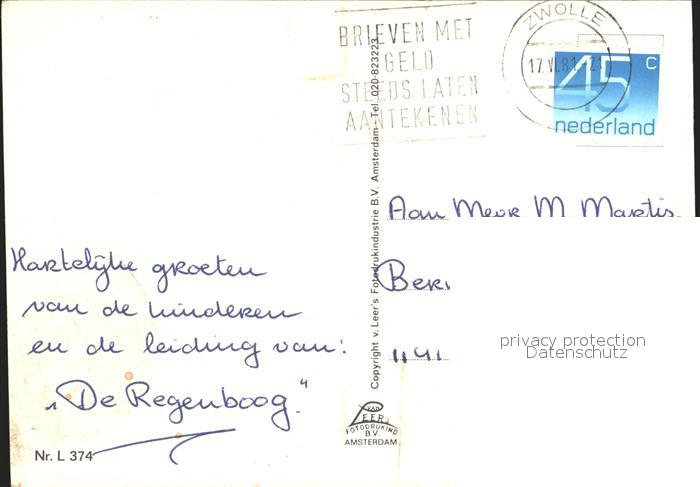 BRIEVEN MET
GELD
STEEDS LATEN
AANTEKENEN
ZWOLLE
17.VI.81-21
45 C
nederland
Hartelijke groeten
van de kinderen
en de leiding van:
„De Regenboog"
Nr. L 374
Copyright v. Leer's Fotodrukindustrie B.V. Amsterdam-Tel. 020-823223
VAN
LEER
FOTODRUKIND
B.V.
AMSTERDAM
Aan Mevr M. Martis
privacy protection
Datenschutz